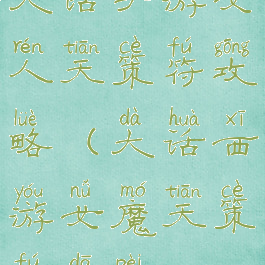 话 游
rén tiān cè fú gōng
人 天 策 符 攻
lüè dà huà xī
略 ( 大 话 西
yóu nǚ mó tiān cè
游 女 魔 天 策
fú dā pèi